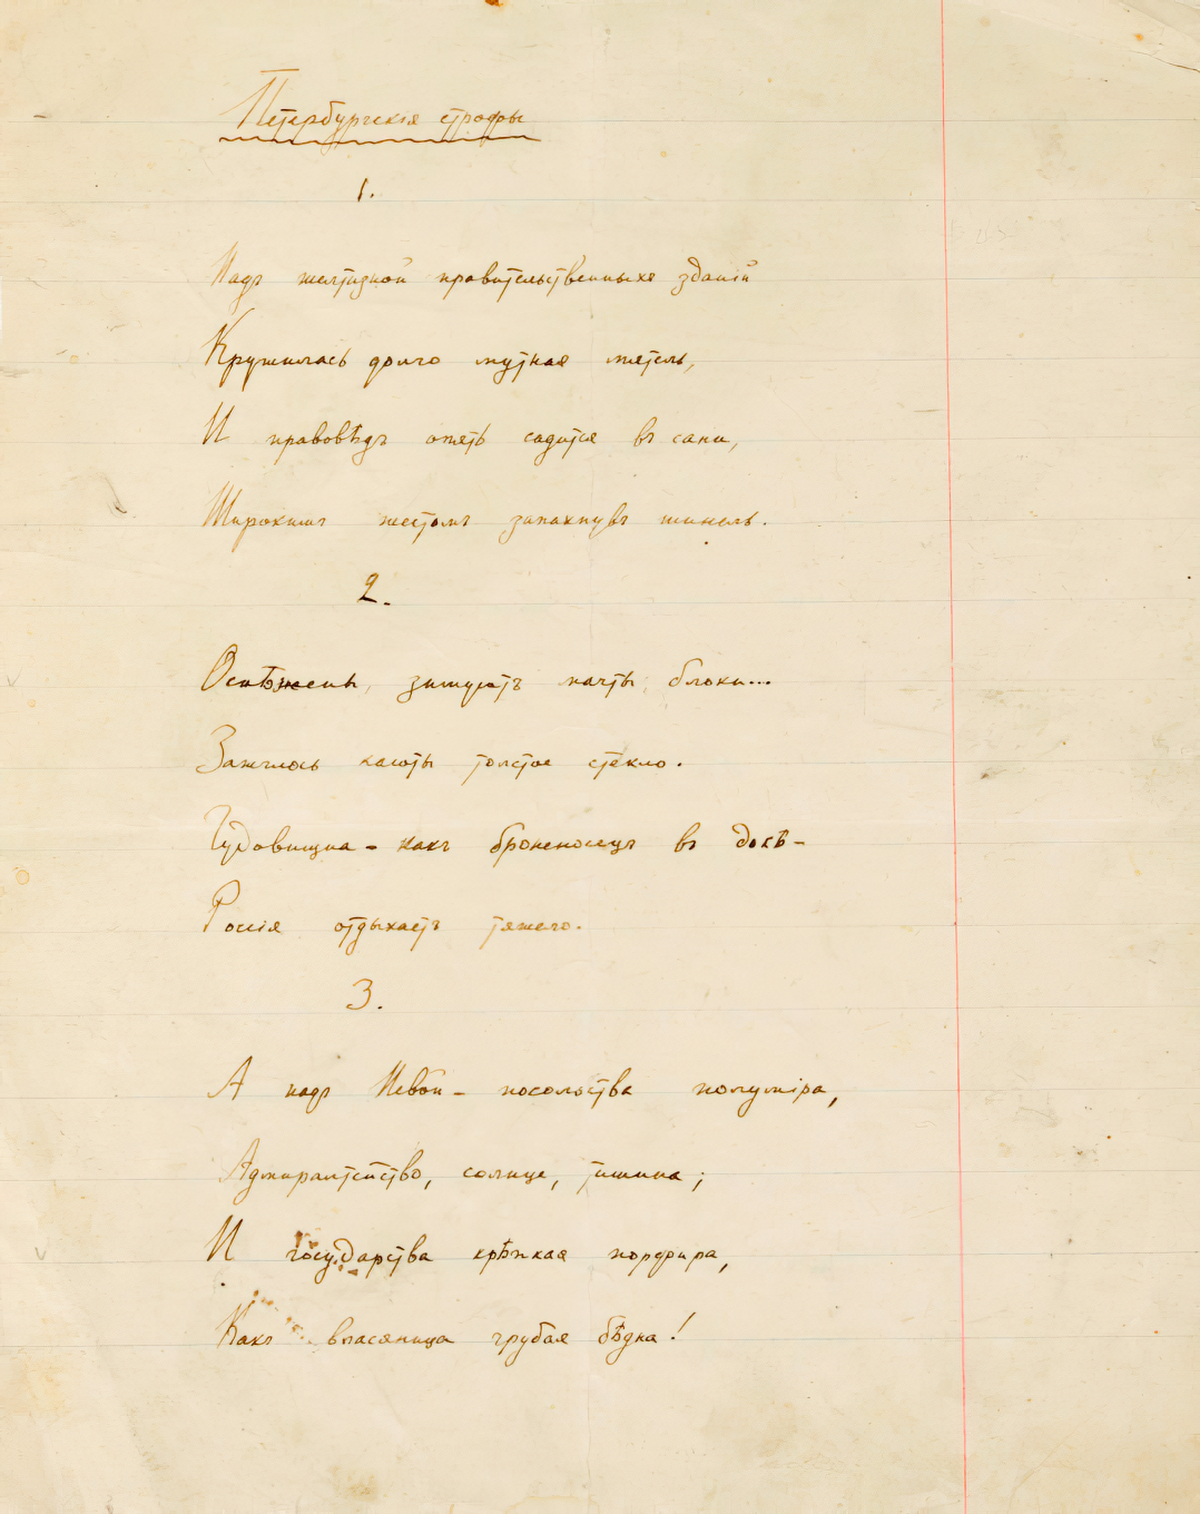 Петербургскія строфы
1.
Надъ желтизной правительственныхъ зданій
Кружилась долго мутная мятель,
И правовѣдъ опять садится въ сани,
Широкимъ жестомъ запахнувъ шинель.
2.
Зимуютъ мачты, блоки...
Зажглось каюты толстое стекло.
Чудовищна – какъ броненосецъ въ докѣ –
Россія отдыхаетъ тяжело.
3.
А надъ Невой – посольства полуміра,
Адмиралтейство, солнце, тишина;
И государства крѣпкая порфира,
Какъ власяница грубая бѣдна!